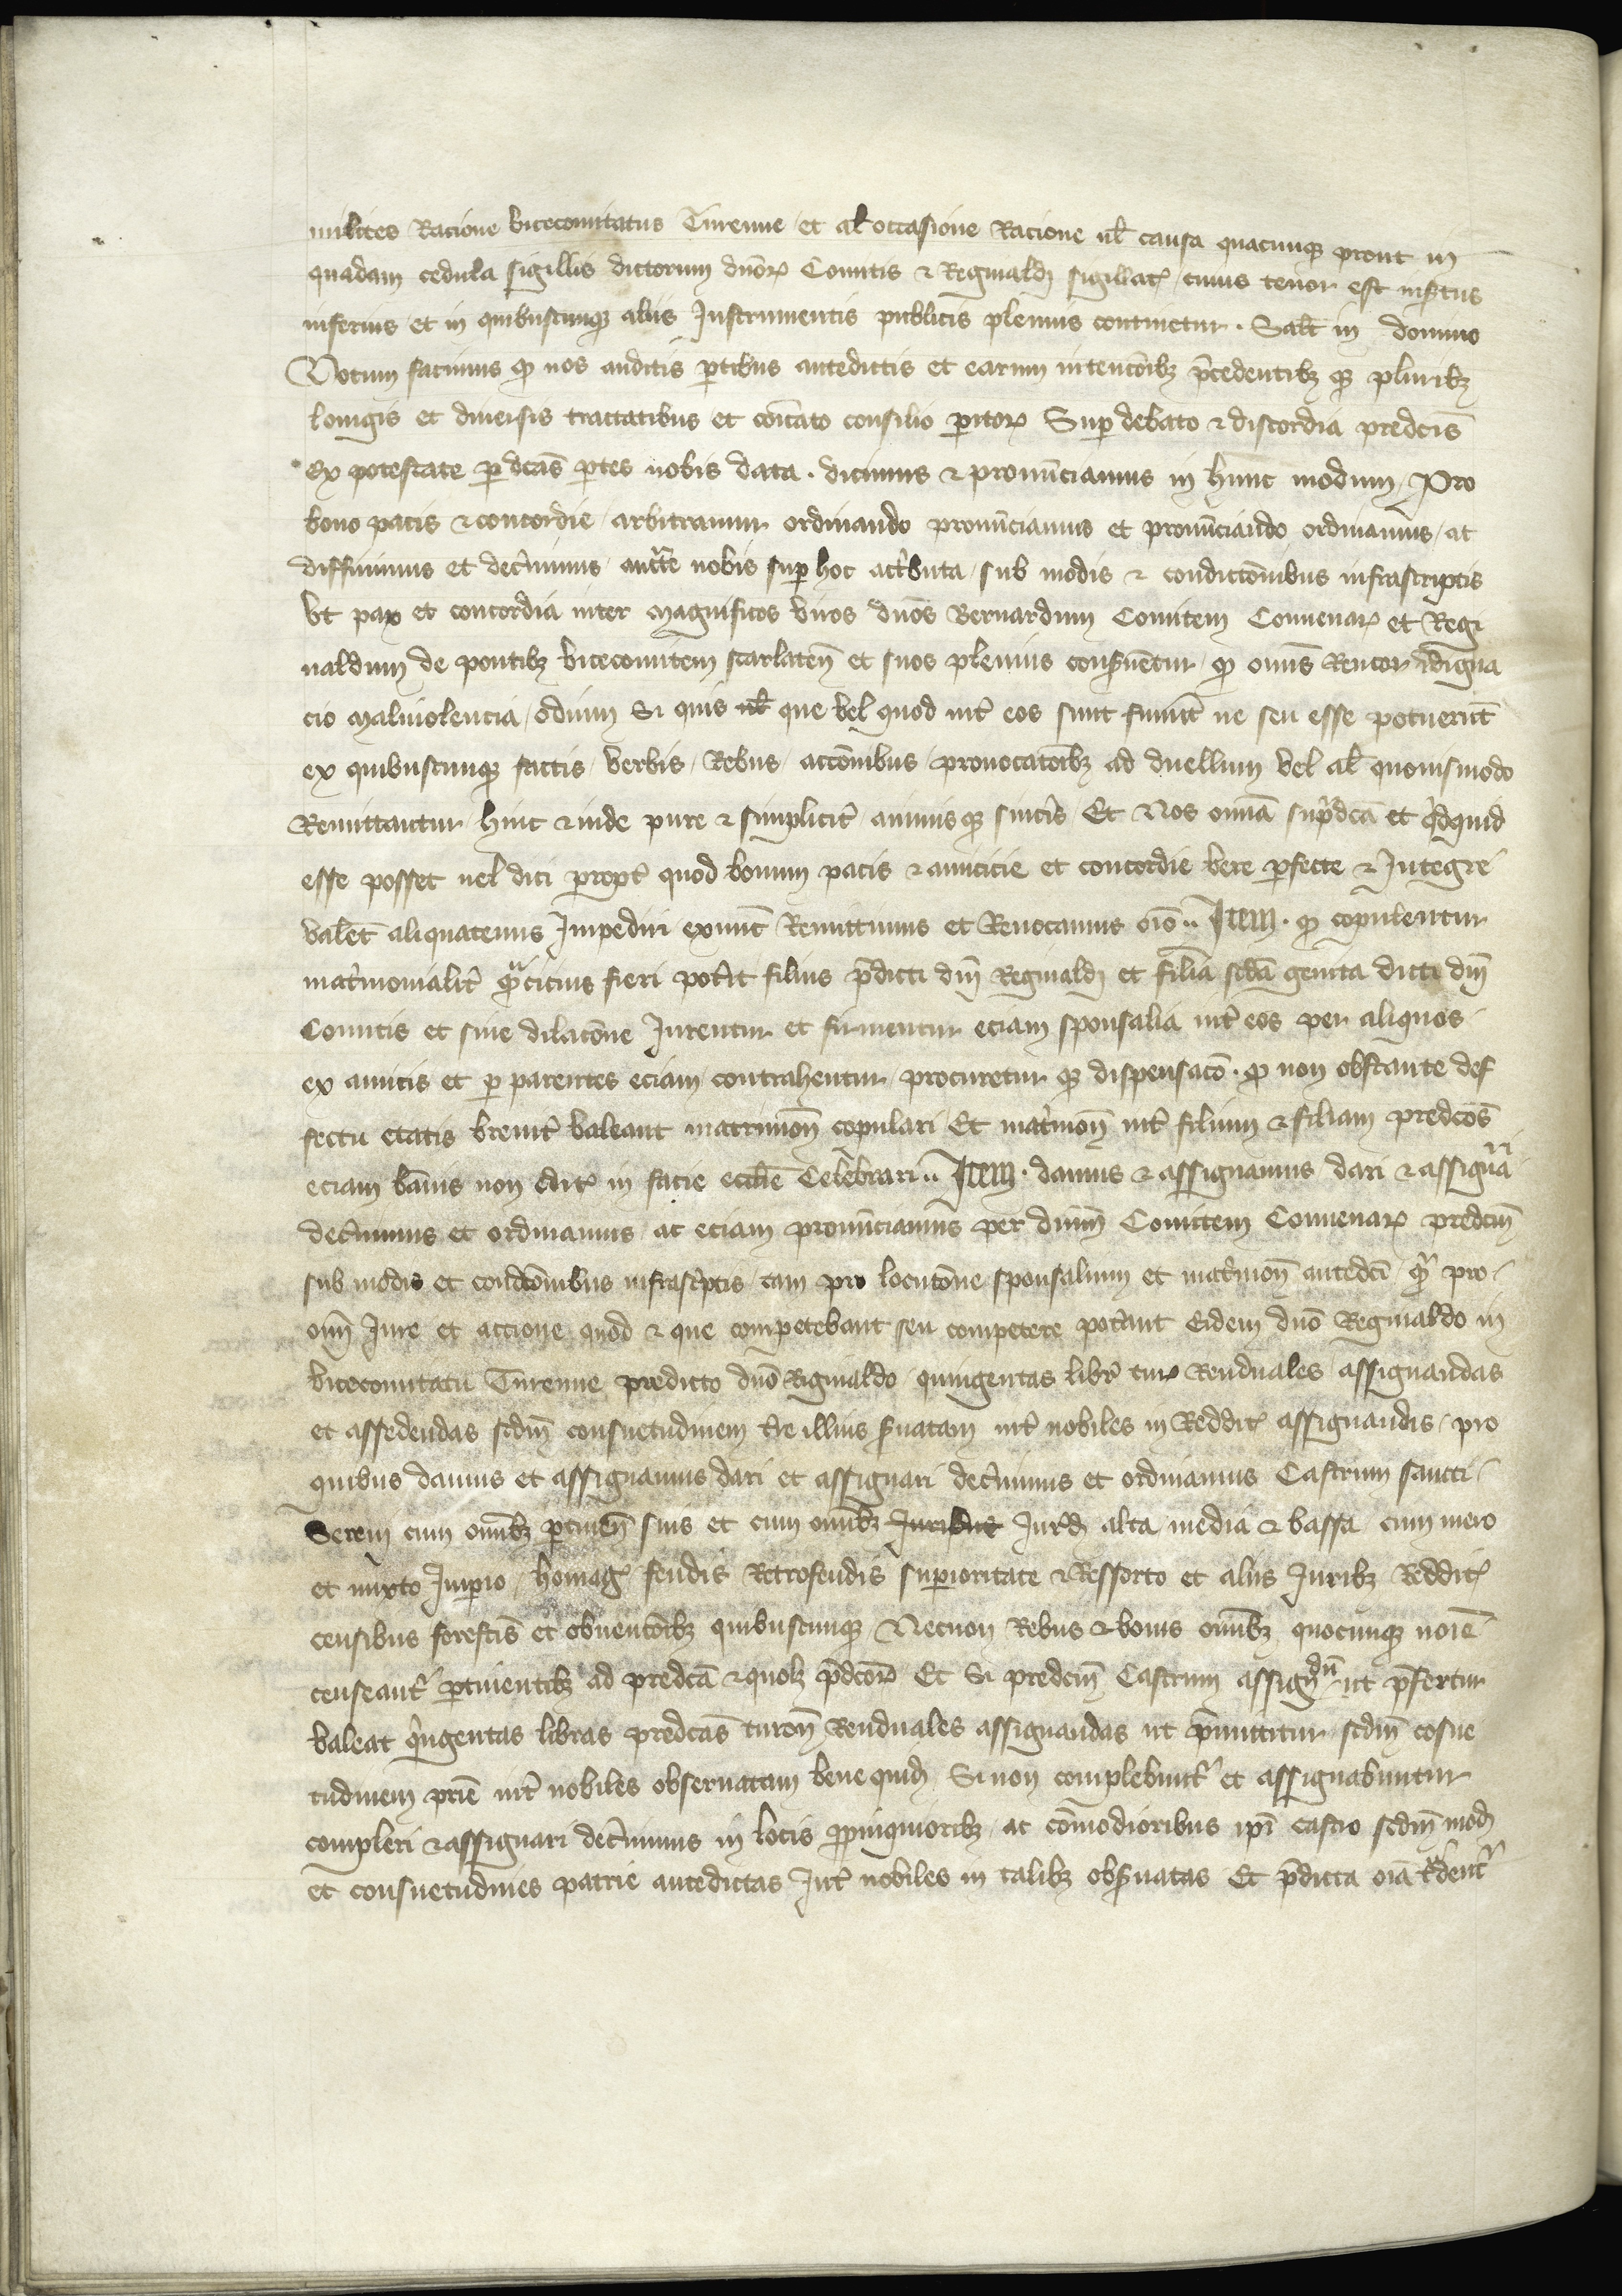 milites Racione vicecomitatus Turenne et al̄ occasione Racione ul̄ causa quacunqꝫ prout in
quadam cedula sigillis dictorum dn̄orꝝ Comitis ⁊ Reginaldi sigillatꝭ cuius tenor est insertus
inferius et in quibuscunqꝫ aliis Instrumentis publicis plenius continetur. Salt̄ in domino
Notum facimus ꝙ nos auditis ꝑtibus antedictis et earum intencōibꝫ p̄cedentibꝫ qꝫ pluribꝫ
longis et diuersis tractatibus et cōicato consilio ꝑitorꝝ Suꝑ debato ⁊ discordia predc̄is
Ex potestate ꝑ dc̄as ꝑtes nobis data. dicimus ⁊ pronūciamus in hunc modum Pro
bono pacis ⁊ concordie arbitramur ordinando pronūciamus et pronūciando ordinamus ac
diffinimus et dec̓nimus auct̄te nobis suꝑ hoc att̓buta sub modis ⁊ condic̄onibus infrascriptis
vt pax et concordia inter magnificos viros dn̄os Bernardum Comitem Conuenarꝝ et Regi
naldum de pontibꝫ vicecomitem scarlaten̄ et suos plenius conẜuentur ꝙ omīs Rencor Indigna
cio maliuolencia odium Si quis ul̄ que vel quod int̓ eos sunt fuiut̄ ue seu esse potuerut̄
ex quibuscunqꝫ factis verbis Rebus accōnibus prouocatōibꝫ ad duellum vel al̄ quouismodo
Remittantur hinc ⁊ inde pure ⁊ simplicit̓ animis qꝫ sinc̓is Et Nos omīa sup̓dc̄a et q̓dquid
esse posset uel dici propt̓ quod bonum pacis ⁊ amicicie et concordie vere ꝑfecte ⁊ Integre
valet̄ aliquatenus Impediri exnut̄ Remittimus et Reuocamus oīo.. Item. ꝙ copulentur
mat̓monialit̓ qͣcicius fieri pot̓it filius p̄dicti dn̄i Reginaldi et filia scd̄a genita dicti dn̄i
Comitis et sine dilacōne Iurentur et firmentur eciam sponsalia int̓ eos per aliquos
ex amicis et ꝑ parentes eciam contrahentur procuretur qꝫ dispensacō. ꝙ non obstante def
fectu etatis breuit̓ valeant matrimon̄ copulari Et mat̓mon̄ int̓ filium ⁊ filiam predc̄os
eciam bānis non editꝭ in facie eccl̄ie Celebrari.. Item. damus ⁊ assignamus dari ⁊ assignari
dec̓nimus et ordinamus ac eciam pronūciamus per dnm̄ Comitem Conuenarꝝ predcm̄
sub modis et condc̄onibus infrasc̓ptis tam pro locutōne sponsalium et mat̓mon̄ antedc̄i qͣ pro
omī Iure et accione quod ⁊ que competebant seu competere pot̓ant Eidem dn̄o Reginaldo in
vicecomitatu Turenne predicto dn̄o Riginaldo quingentas libr̓ turꝭ Renduales assignandas
et assedendas scdm̄ consuetudinem t̓re illius ẜuatam int̓ nobiles in Redditꝭ assignandis pro
quibus damus et assignamus dari et assignari dec̓nimus et ordinamus Castrum sancti
Sereni cum omībꝫ ꝑtinen̄ suis et cum omībꝫ Iuribus Iur̓d alta media ⁊ bassa cum mero
et mixto Imꝑio homagꝭ feudis Retrofeudis suꝑioritate ⁊ Ressorto et aliis Iuribꝫ Redditꝭ
censibus forestis et obuencōibꝫ quibuscunqꝫ Necnon Rebus ⁊ bonis omībꝫ quocunqꝫ noīe
censeant̓ ꝑtinentibꝫ ad predc̄a ⁊ quolꝫ p̄dcorꝝ Et Si predcm̄ Castrum assignd̄u ut p̄fertur
valeat q̓ngentas libras predc̄as turon̄ Renduales assignandas ut p̄mittitur scdm̄ cosue
tudinem pr̄ie int̓ nobiles obseruatam bene quidꝫ Si non complebunt̓ et assignabuntur
compleri ⁊ assignari dec̓nimus in locis ꝓpinquioribꝫ ac cōmodioribus ip̄i castro scdm̄ mod
et consuetudines patrie antedictas Int̓ nobiles in talibꝫ obẜuatas Et p̄dicta oīa t͛dent̓